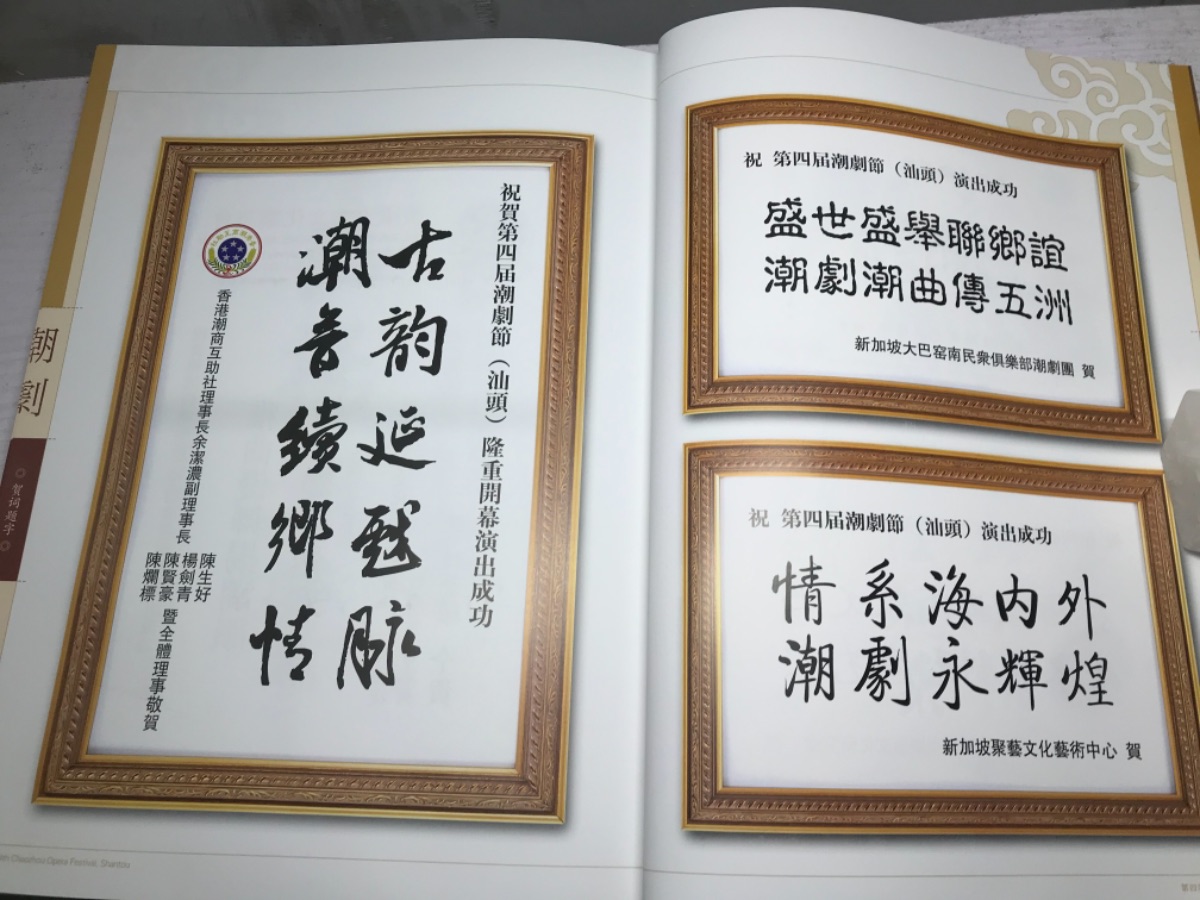 潮劇
賀詞題字
祝賀第四屆潮劇節（汕頭）隆重開幕演出成功
古韵延戲脈
潮音續鄉情
香港潮商互助社理事長余潔濃副理事長
陳生好
楊劍青
陳賢豪
陳爛標
暨全體理事敬賀
Chaozhou Opera Festival, Shantou
祝 第四屆潮劇節（汕頭）演出成功
盛世盛舉聯鄉誼
潮劇潮曲傳五洲
新加坡大巴窑南民衆俱樂部潮劇團 賀
祝 第四屆潮劇節（汕頭）演出成功
情系海内外
潮劇永輝煌
新加坡聚藝文化藝術中心 賀